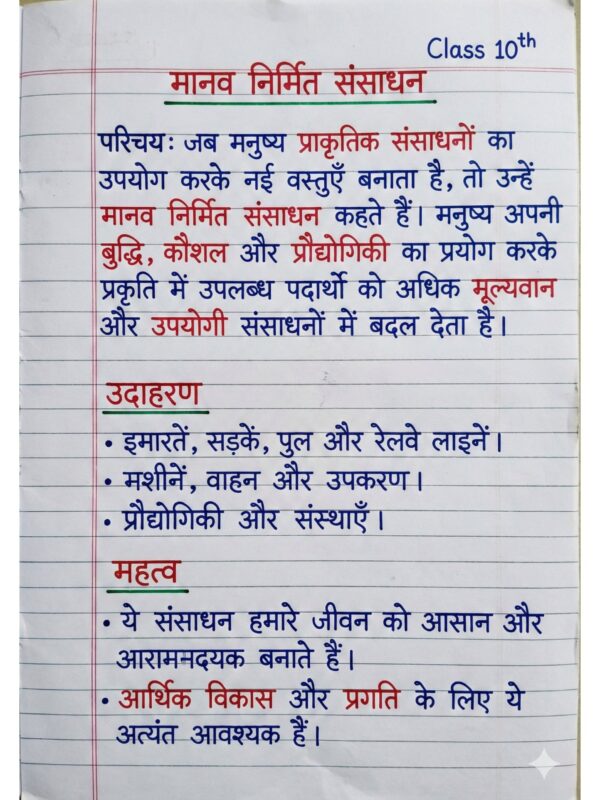 Class 10th
मानव निर्मित संसाधन
परिचयः जब मनुष्य प्राकृतिक संसाधनों का
उपयोग करके नई वस्तुएँ बनाता है, तो उन्हें
मानव निर्मित संसाधन कहते हैं। मनुष्य अपनी
बुद्धि, कौशल और प्रौद्योगिकी का प्रयोग करके
प्रकृति में उपलब्ध पदार्थो को अधिक मूल्यवान
और उपयोगी संसाधनों में बदल देता है।
उदाहरण
• इमारतें, सड़कें, पुल और रेलवे लाइनें।
• मशीनें, वाहन और उपकरण।
• प्रौद्योगिकी और संस्थाएँ।
महत्व
• ये संसाधन हमारे जीवन को आसान और
आरामनदयक बनाते हैं।
• आर्थिक विकास और प्रगति के लिए ये
अत्यंत आवश्यक हैं।